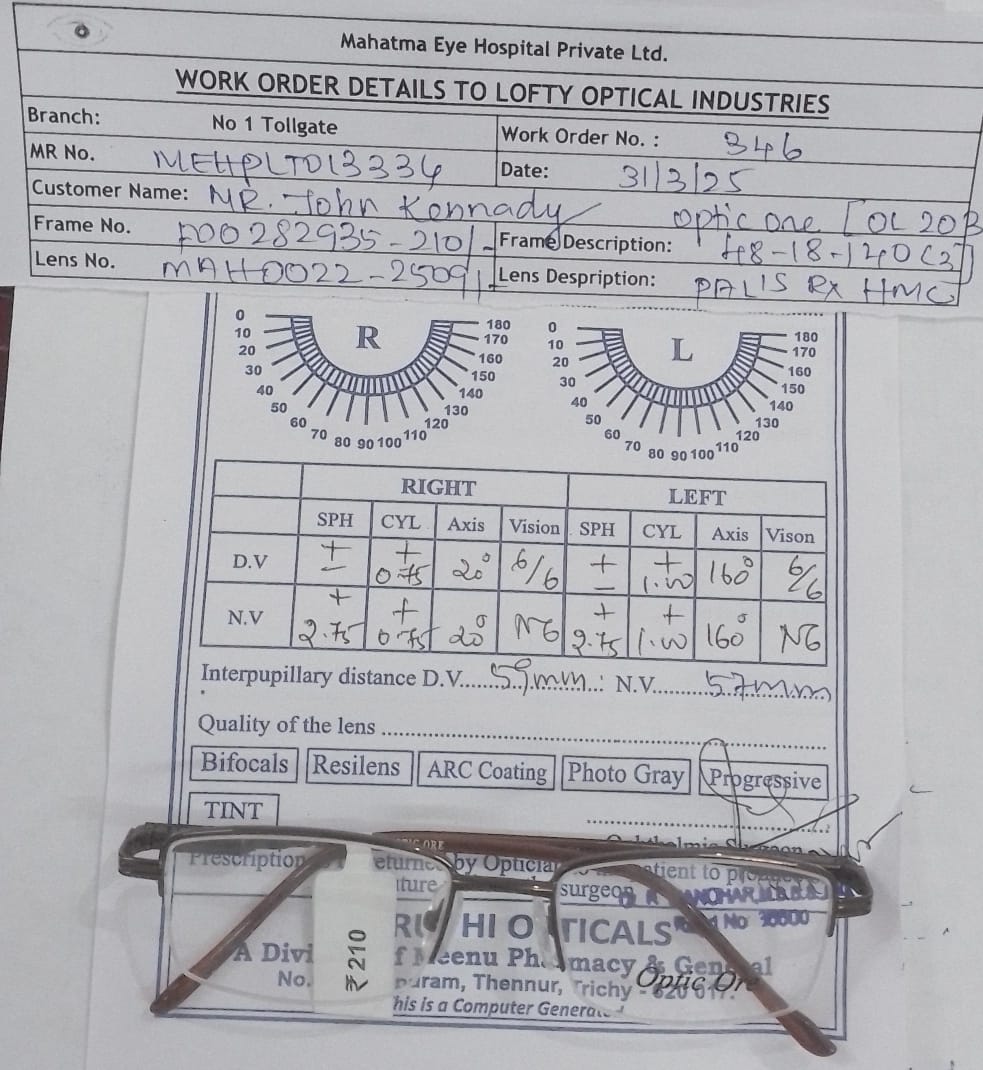 Mahatma Eye Hospital Private Ltd.
WORK ORDER DETAILS TO LOFTY OPTICAL INDUSTRIES
Branch: No 1 Tollgate Work Order No. : 346
MR No. MEHPLTD13334 Date: 31/3/25
Customer Name: MR. John Kennady Optic one [OL 203
Frame No. F00282935-210/- Frame Description: 48-18-140 C3]
Lens No. MAH0022-2509 Lens Despription: PAL'S RX HMC
R L
0 180 0 180
10 170 10 170
20 160 20 160
30 150 30 150
40 140 40 140
50 130 50 130
60 120 60 120
70 80 90 100 110 70 80 90 100 110
RIGHT LEFT
SPH CYL Axis Vision SPH CYL Axis Vison
D.V + - + 0.75 20° 6/6 + - + 1.00 160° 6/6
N.V + 2.75 + 0.75 20° N6 + 2.75 + 1.00 160° N6
Interpupillary distance D.V......59mm...: N.V..........57mm
Quality of the lens ..........
Bifocals Resilens ARC Coating Photo Gray Progressive
TINT
Prescription eturned by Optician tient to
ture surgeon
HI O TICALS No
A Divi f Meenu Ph macy & General
No. puram, Thennur, Trichy - 620 017.
his is a Computer Genera
₹210
Optic One